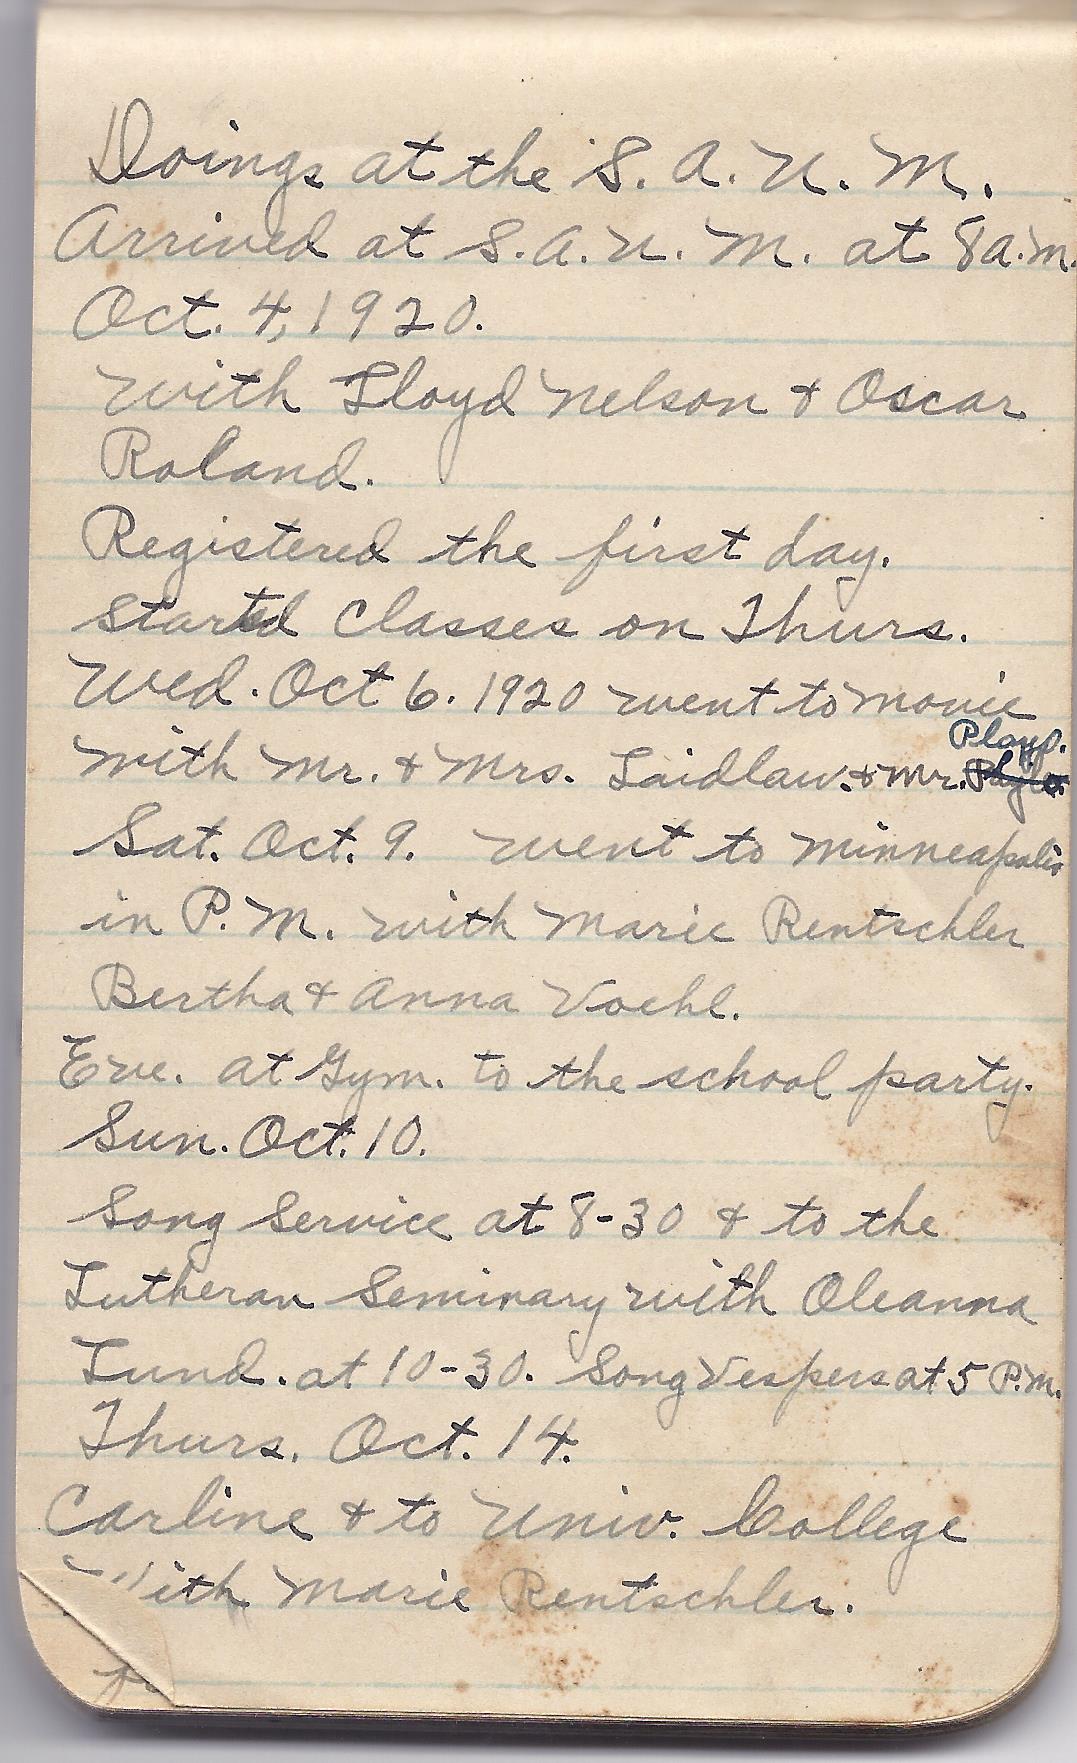 Doings at the S. A. U. M.
Arrived at S. A. U. M. at 8 a.m.
Oct. 4, 1920.
with Lloyd Nelson & Oscar
Roland.
Registered the first day.
started classes on Thurs.
Wed. Oct 6. 1920 went to movie
Playp.
with Mr. & Mrs. Laidlaw. & Mr.
Sat. Oct. 9. went to Minneapolis
in P.M. with Marie Rentschler
Bertha & Anna Voehl.
Eve. at Gym. to the school party.
Sun. Oct. 10.
Song Service at 8-30 & to the
Lutheran Seminary with Oleanna
Lund. at 10-30. Song Vespers at 5 P.M.
Thurs. Oct. 14.
Carline & to Univ. College
With Marie Rentschler.